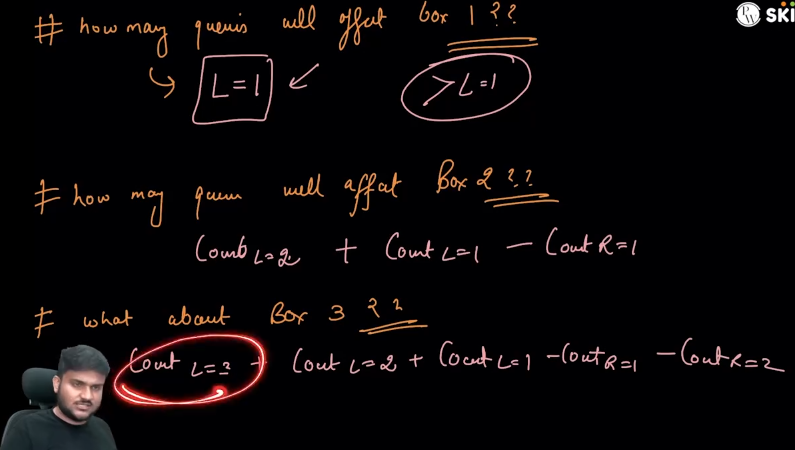 # how may queries will affect box 1 ??
PW SKI
L=1
>L=1
# how may queries will affect Box 2 ??
Count L=2 + Count L=1 - Count R=1
# what about Box 3 ??
Count L=3 + Count L=2 + Count L=1 - Count R=1 - Count R=2